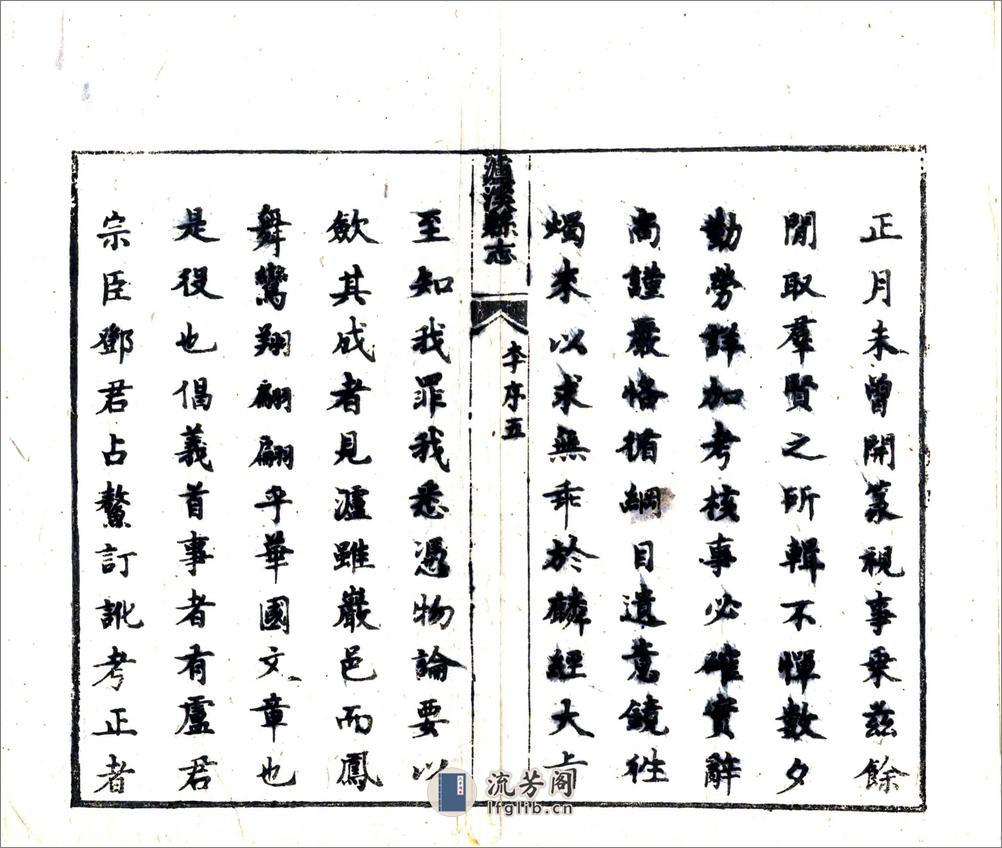 正月未曾開篆視事乗茲餘
閒取羣賢之所輯不憚數夕
勤勞詳加考核事必確實辭
尚謹嚴恪循綱目遺意鏡往
燭來以求無乖於麟經大旨
瀘溪縣志
李序五
至知我罪我悉憑物論要以
歛其成者見瀘雖巖邑而鳳
舞鸞翔翩翩乎華國文章也
是役也倡義首事者有盧君
宗臣鄧君占鰲訂訛考正者
流芳阁
lfglib.cn